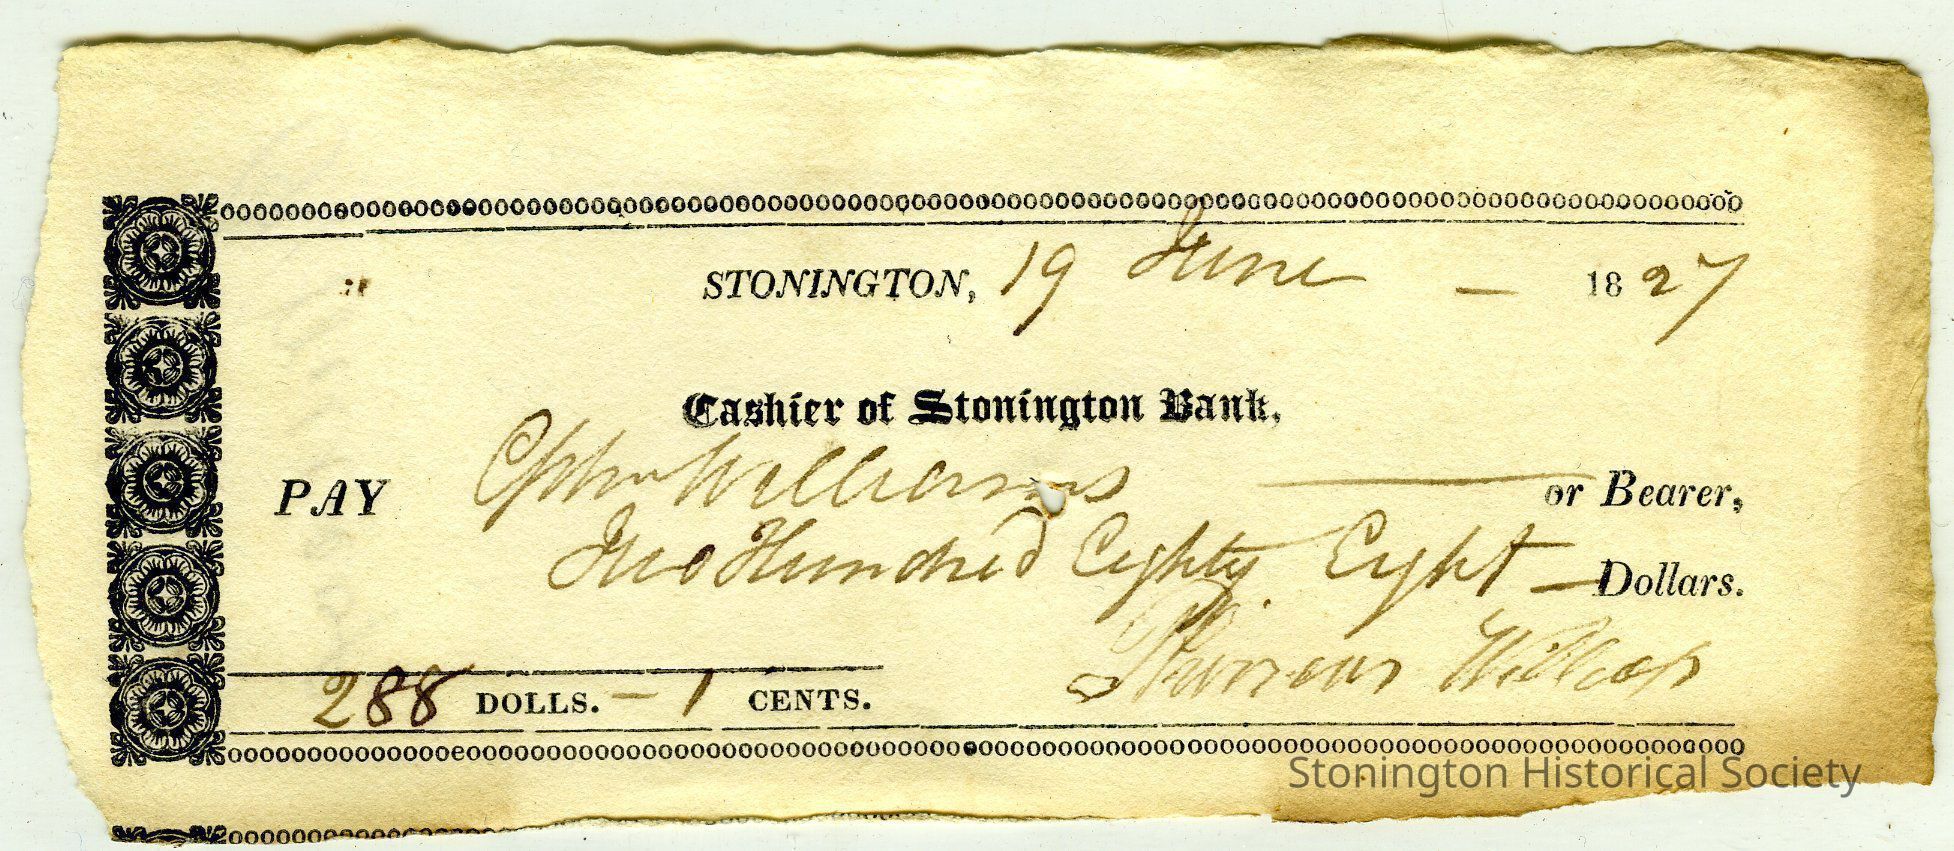 STONINGTON, 19 June — 1827
Cashier of Stonington Bank,
PAY Ephm Williams — or Bearer,
Two Hundred Eighty Eight — Dollars.
288 DOLLS. — 1 CENTS.
Phineas Wilcox
Stonington Historical Society